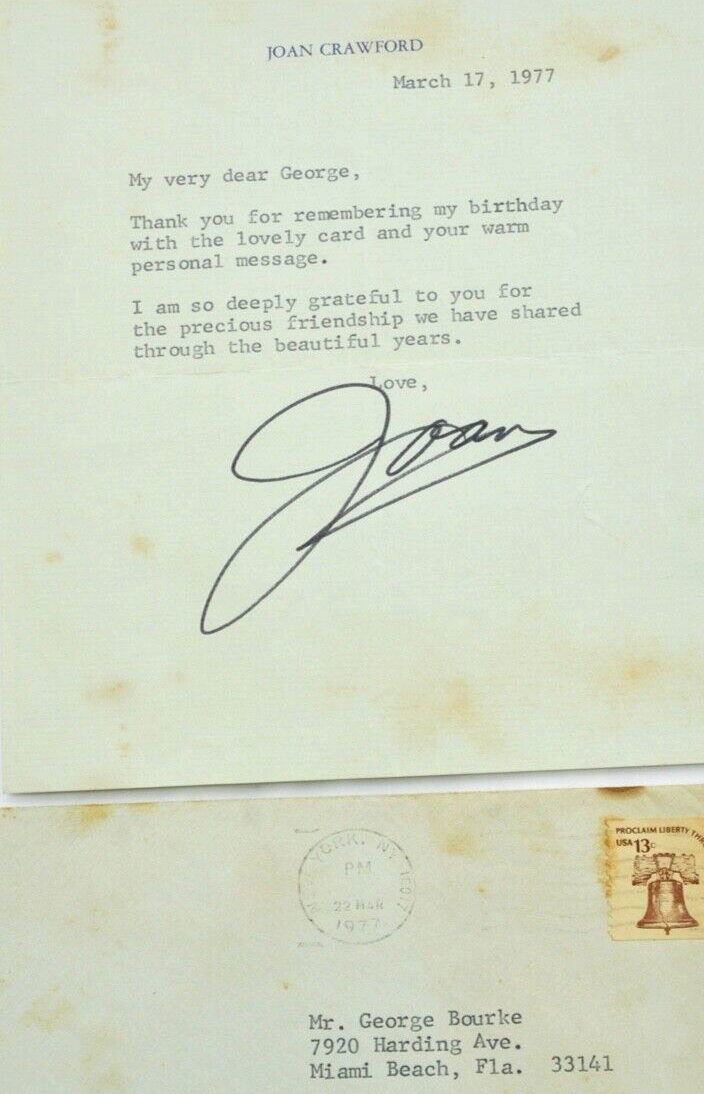 JOAN CRAWFORD
March 17, 1977
My very dear George,
Thank you for remembering my birthday
with the lovely card and your warm
personal message.
I am so deeply grateful to you for
the precious friendship we have shared
through the beautiful years.
Love,
Joan
NEW YORK, NY
PM
22 MAR
1977
PROCLAIM LIBERTY
USA 13c
Mr. George Bourke
7920 Harding Ave.
Miami Beach, Fla. 33141